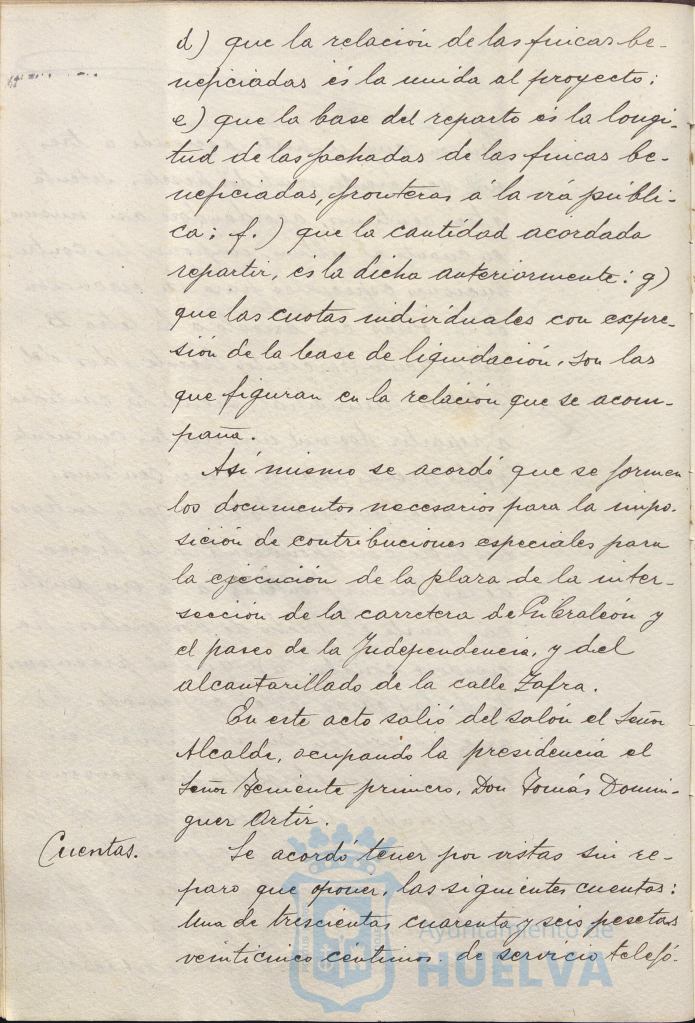 d) que la relación de las fincas be-
neficiadas és la unida al proyecto;
e) que la base del reparto és la longi-
tud de las fachadas de las fincas be-
neficiadas, fronteras á la vía públi-
ca; f.) que la cantidad acordada
repartir, és la dicha anteriormente: g)
que las cuotas individuales con expre-
sión de la base de liquidación, son las
que figuran en la relación que se acom-
paña.
Así mismo se acordó que se formen
los documentos necesarios para la impo-
sición de contribuciones especiales para
la ejecución de la plaza de la inter-
sección de la carretera de Gibraleón y
el paseo de la Independencia, y del
alcantarillado de la calle Zafra.
En este acto salió del salón el Señor
Alcalde, ocupando la presidencia el
Señor Teniente primero, Don Tomás Domin-
guez Ortiz.
Cuentas.
Se acordó tener por vistas sin re-
paro que oponer, las siguientes cuentas:
Una de trescientas cuarenta y seis pesetas
veinticinco céntimos. de servicio telefó-
Ayuntamiento de
HUELVA